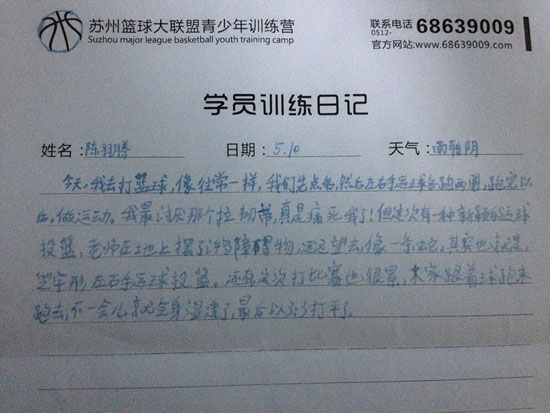 苏州篮球大联盟青少年训练营
Suzhou major league basketball youth training camp
联系电话 0512- 68639009
官方网站:www.68639009.com
学员训练日记
姓名: 陈羿腾 日期: 5.10 天气: 雨转阴
今天,我去打篮球,像往常一样,我们先点名,然后左右手运球各跑两圈,跑完以
后,做运动。我最讨厌那个拉韧带,真是痛死我了!但这次有一种新颖的运球
投篮,老师在地上摆了障碍物,远远望去,像一条蛇,其实也就是
之字形左右手运球投篮。还有这次打比赛也很累,大家跟着球跑来
跑去,不一会儿就全身湿透了,最后以3:3打平了。